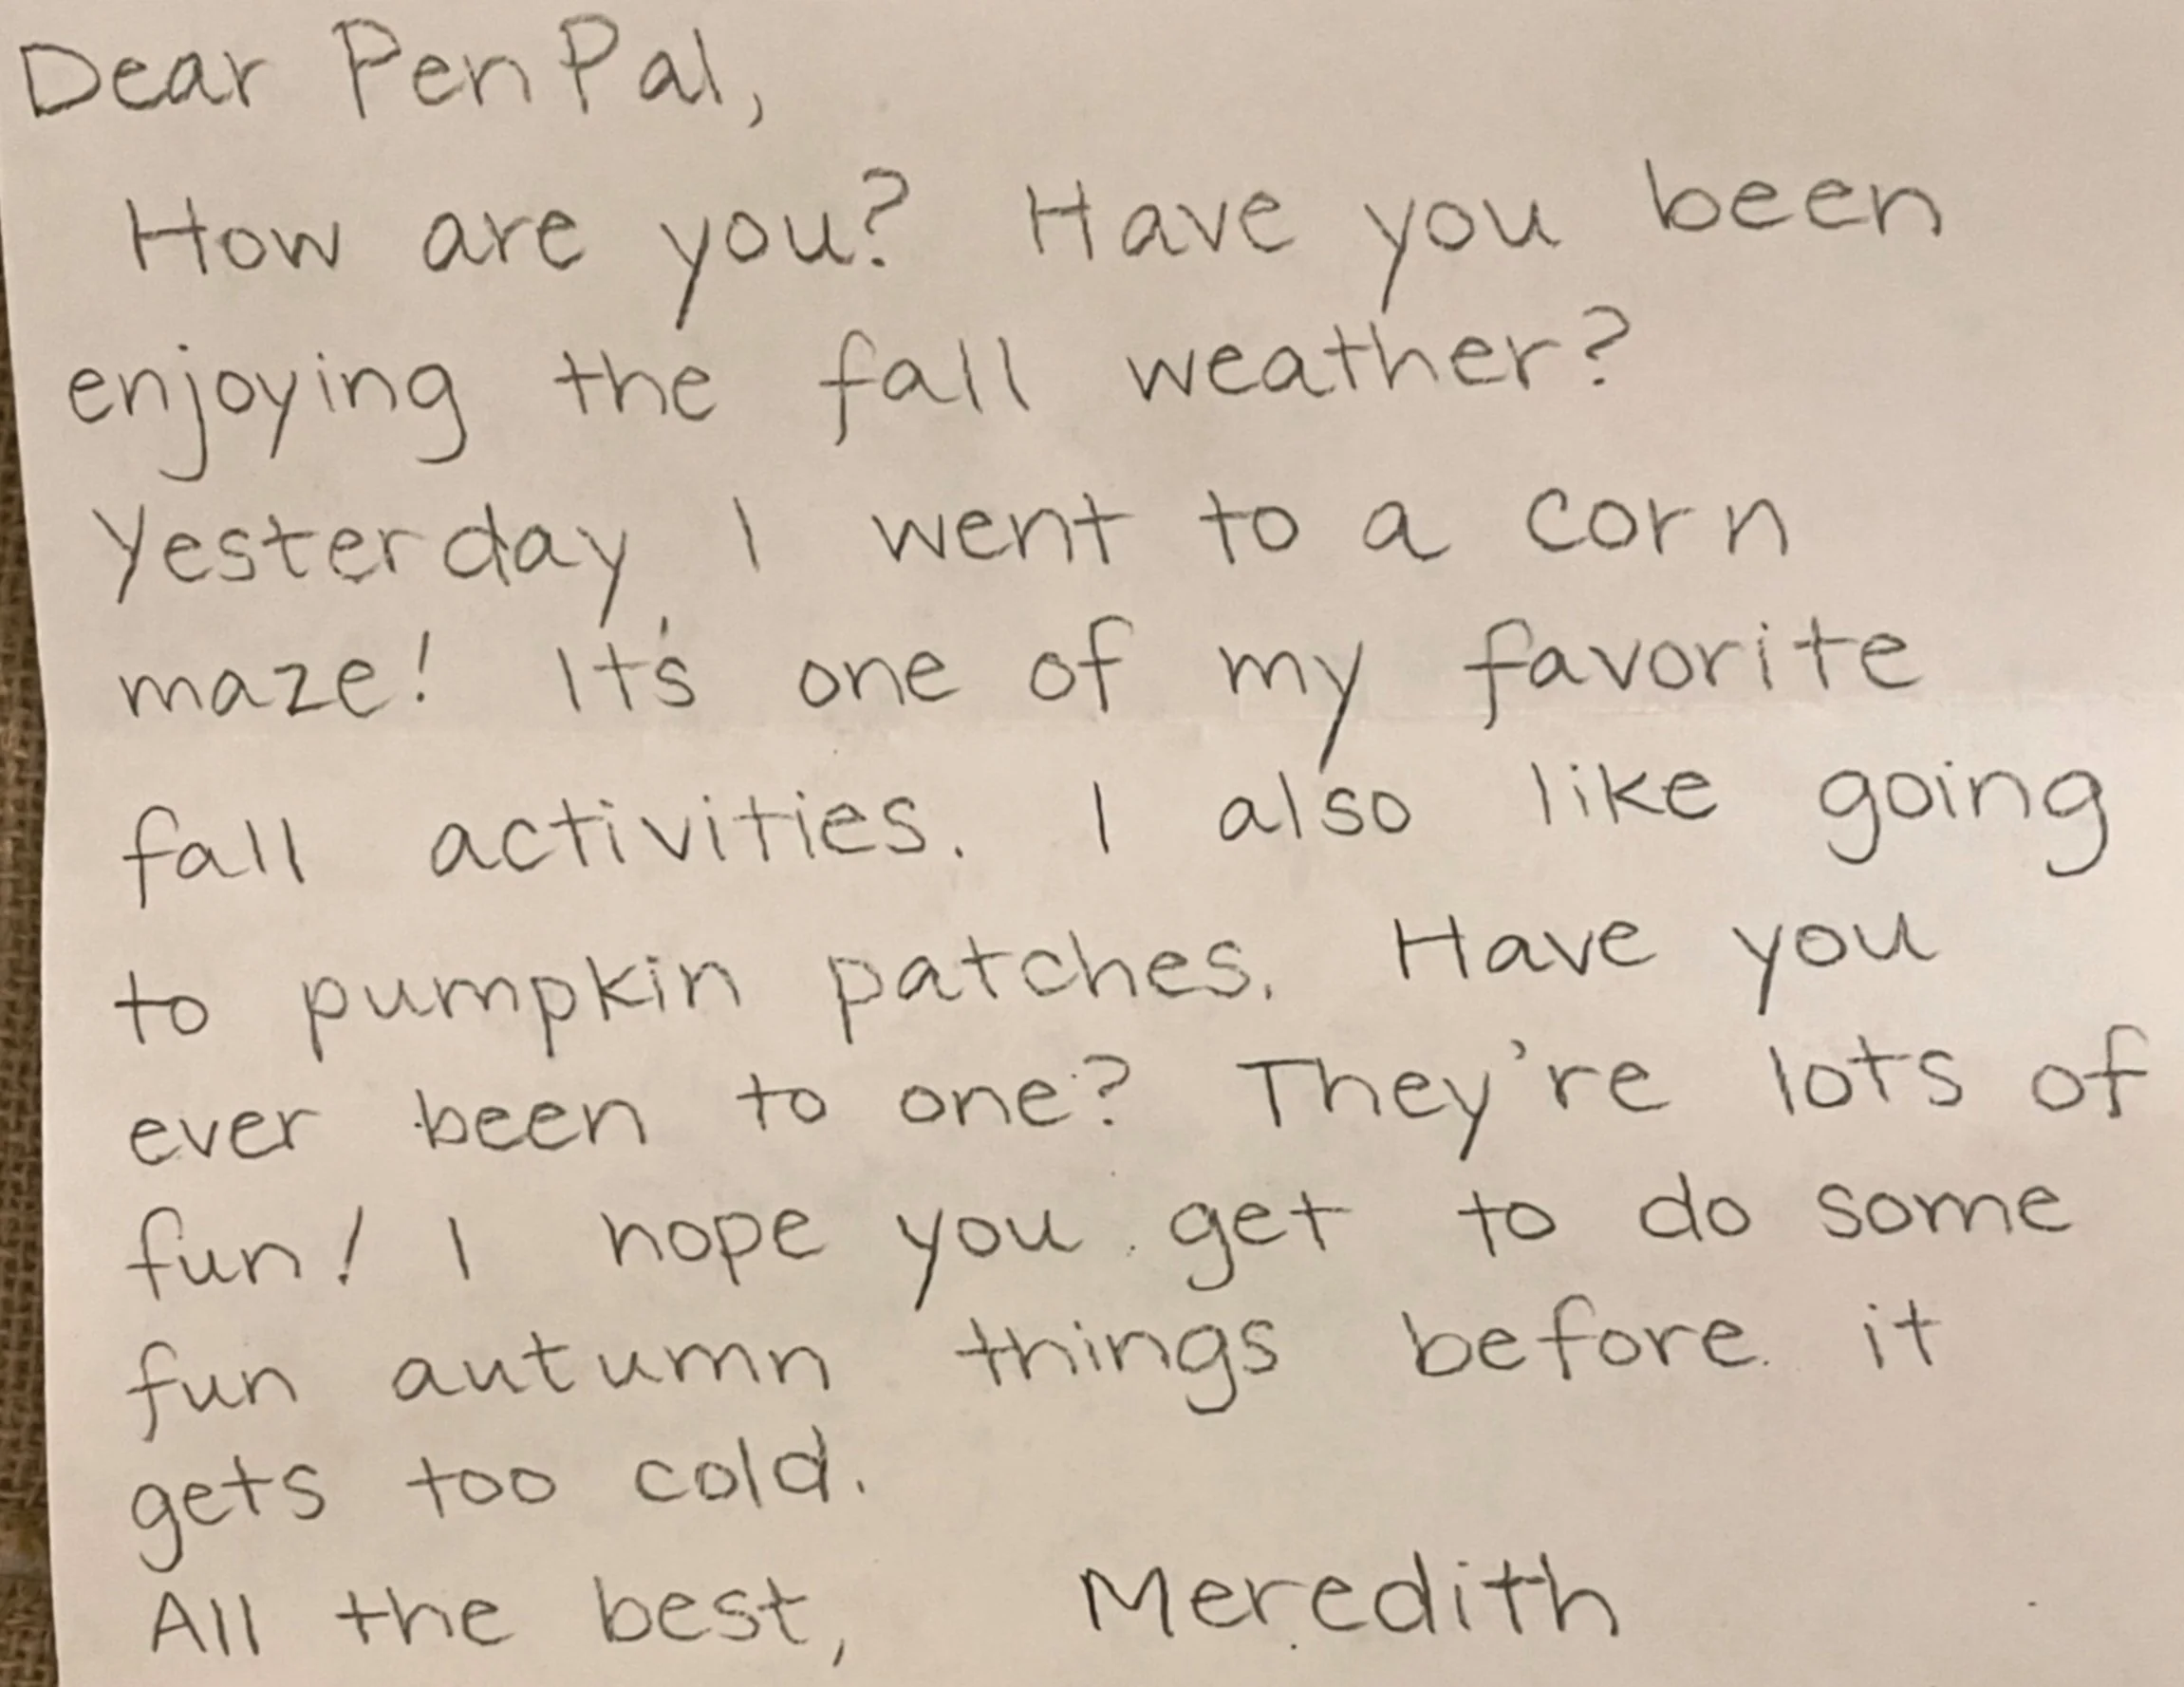 Dear Pen Pal,
How are you? Have you been
enjoying the fall weather?
Yesterday I went to a corn
maze! It's one of my favorite
fall activities. I also like going
to pumpkin patches. Have you
ever been to one? They're lots of
fun! I hope you get to do some
fun autumn things before it
gets too cold.
All the best, Meredith